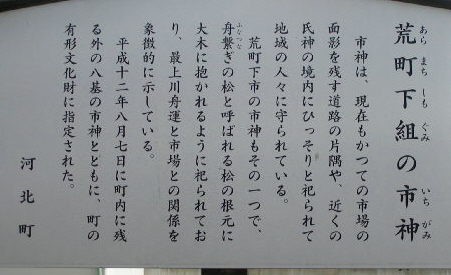 荒町下組の市神
あら まち しも ぐみ いち がみ
市神は、現在もかつての市場の
面影を残す道路の片隅や、近くの
氏神の境内にひっそりと祀られて
地域の人々に守られている。
荒町下市の市神もその一つで、
舟繋ぎの松と呼ばれる松の根元に
ふなつな
大木に抱かれるように祀られてお
り、最上川舟運と市場との関係を
象徴的に示している。
平成十二年八月七日に町内に残
る外の八基の市神とともに、町の
有形文化財に指定された。
河北町